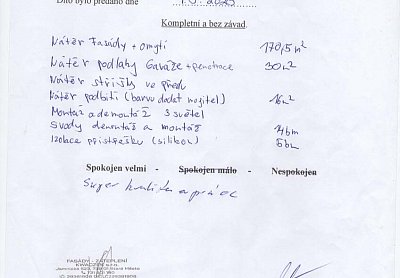 Dílo bylo předáno dne
Kompletní a bez závad.
Nátěr Fasády + omytí 170,5 m²
Nátěr podlahy Garáže + penetrace 30 m²
Nátěr stříšky ve předu
Nátěr podbití (barvu dodal majitel) 16 m²
Montáž a demontáž 3 světel
Svody demontáž a montáž 14bm
Izolace přístřešku (silikon) 6bm
Spokojen velmi - Spokojen málo - Nespokojen
Super kvalita a práce
FASÁDY - ZATEPLENÍ